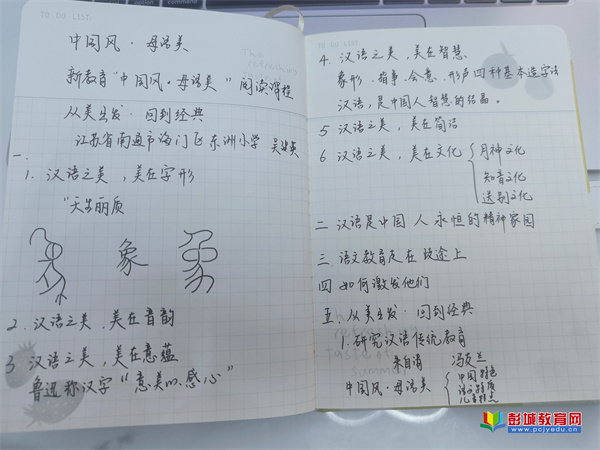 TO DO LIST
中国风·母语美
新教育"中国风·母语美"阅读课程
从美出发·回到经典
江苏省南通市海门区东洲小学 吴建英
一.
1. 汉语之美,美在字形
"天生丽质
象
2. 汉语之美,美在音韵
3 汉语之美,美在意蕴
鲁迅称汉字"意美以感心"
TO DO LIST
4. 汉语之美,美在智慧.
象形、指事、会意、形声四种基本造字法
汉语,是中国人智慧的结晶。
5 汉语之美,美在简洁
6 汉语之美,美在文化
月神文化
知音文化
送别文化
二 汉语是中国人永恒的精神家园
三 语文教育走在歧途上
四 如何激发他们
五. 从美出发·回到经典
1. 研究汉语传统教育
朱自清 冯友兰
中国风·母语美
中国特色
语文特质
儿童特点
彭城教育网
www.pcjyedu.cn